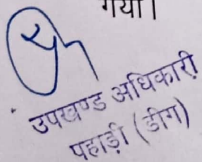 गया।
उपखण्ड अधिकारी
पहाड़ी (डीग)